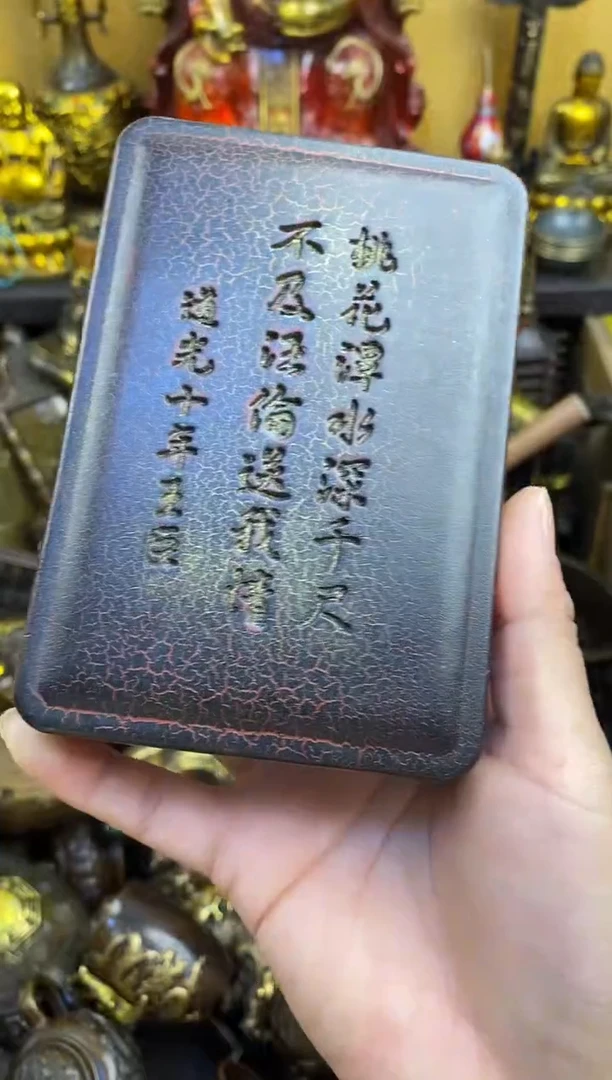 桃花潭水深千尺
不及汪倫送我情
道光十年